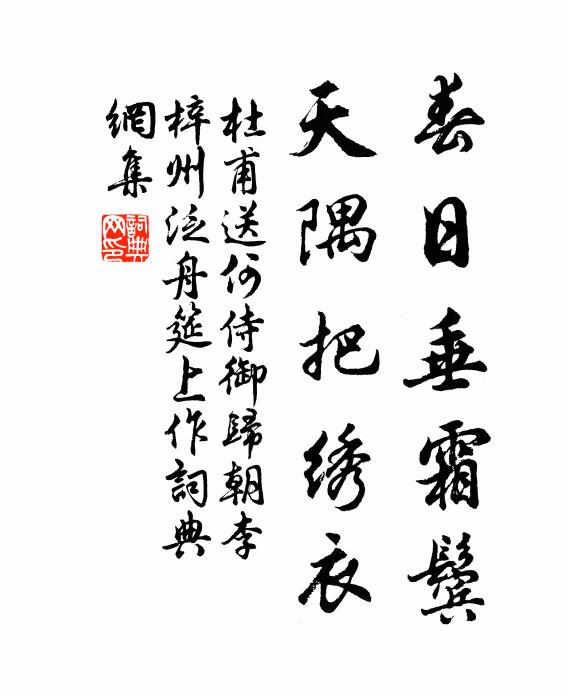 春日垂霜鬓
天隅把绣衣
杜甫送何侍御歸朝李
梓州泛舟筵上作詞典
網集
詞典
网印